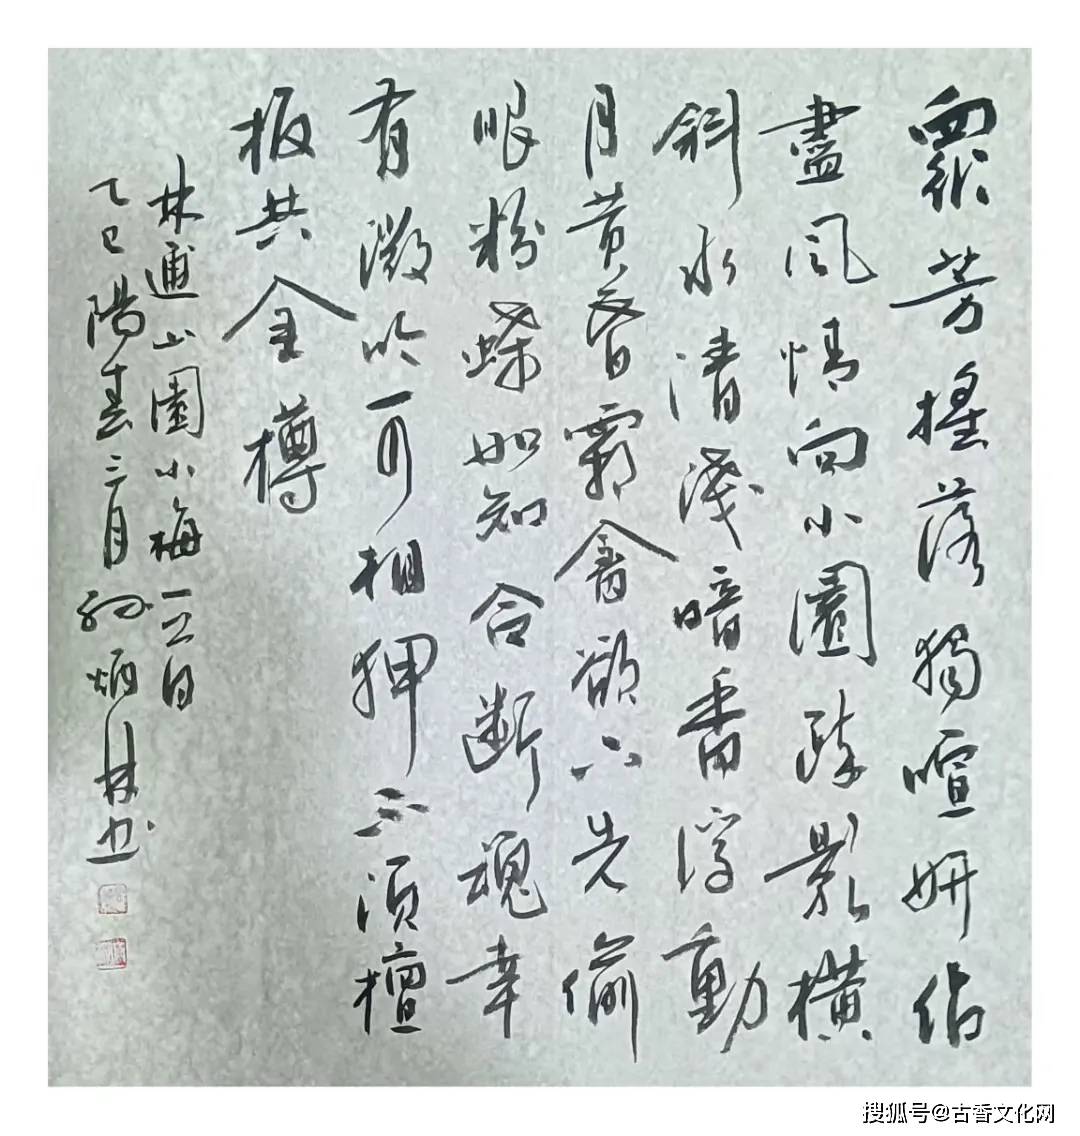 眾芳搖落獨喧妍佔
盡風情向小園疏影橫
斜水清淺暗香浮動
月黃昏霜禽欲下先偷
眼粉蝶如知合斷魂幸
有微吟可相狎不須檀
板共金樽
林逋山園小梅一首
乙巳陽春三月炳林书
搜狐号@古香文化网